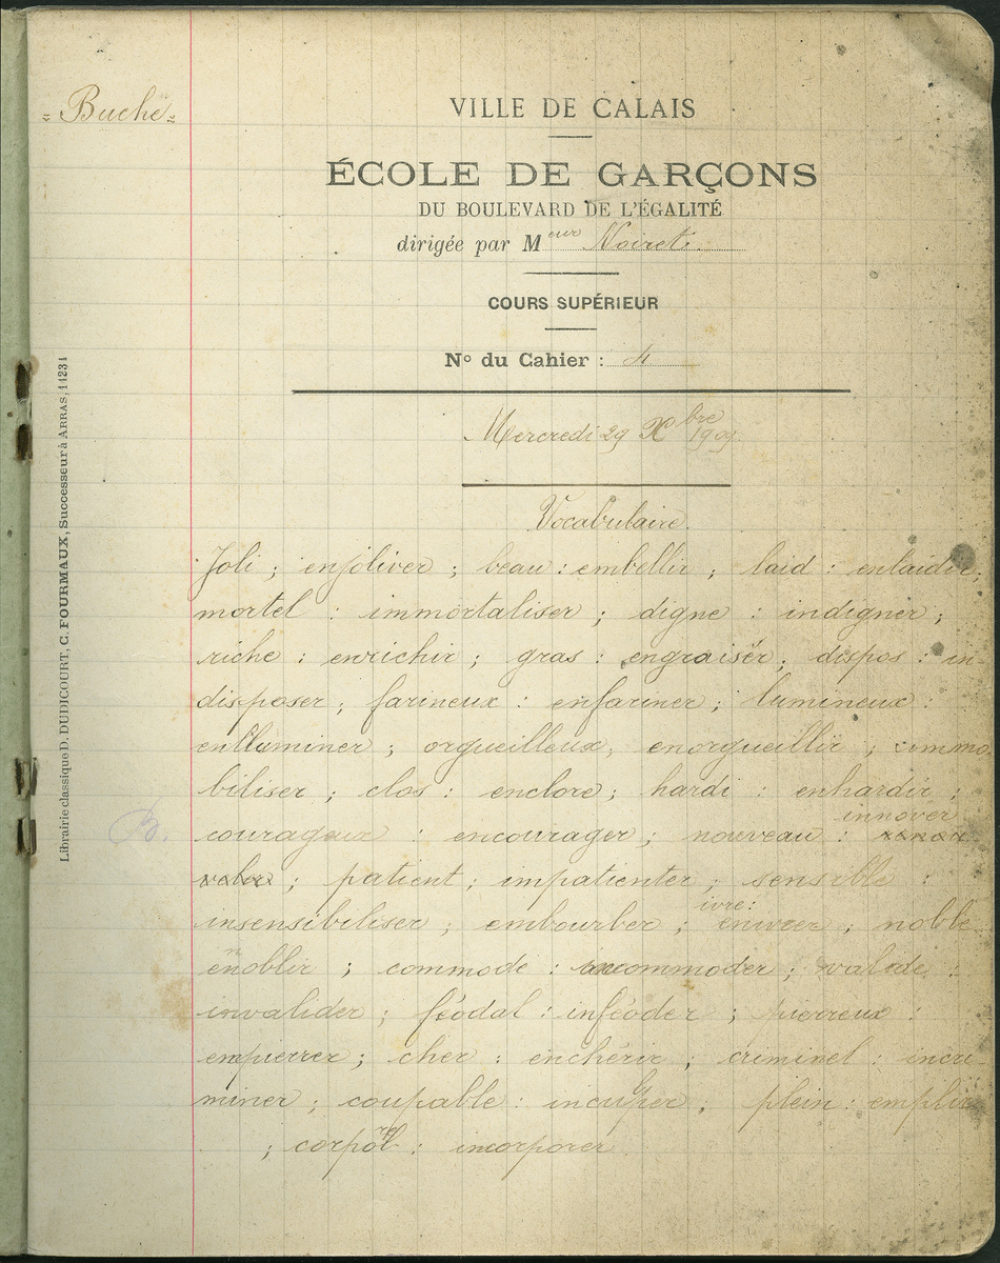 = Buche =
VILLE DE CALAIS
ÉCOLE DE GARÇONS
DU BOULEVARD DE L'ÉGALITÉ
dirigée par Meur Noiret.
COURS SUPÉRIEUR
No du Cahier : 4
Mercredi 29 Xbre 1909
Vocabulaire.
Joli ; enjoliver ; beau : embellir ; laid : enlaidir ;
mortel : immortaliser ; digne : indigner ;
riche : enrichir ; gras : engraisser ; dispos : in-
disposer ; farineux : enfariner ; lumineux :
enlluminer ; orgueilleux ; enorgueillir ; immo
biliser ; clos : enclore ; hardi : enhardir ;
innover
courageux : encourager ; nouveau :
; patient ; impatienter ; sensible :
ivre :
insensibiliser ; embourber ; enivrer ; noble
ennoblir ; commode : incommoder ; valide :
invalider ; féodal : inféoder ; pierreux :
empierrer ; cher : enchérir ; criminel : incri
miner ; coupable : inculper ; plein : emplir
; corporel : incorporer
B.
Librairie classique D. DUDICOURT, C. FOURMAUX, Successeur à ARRAS, 14231